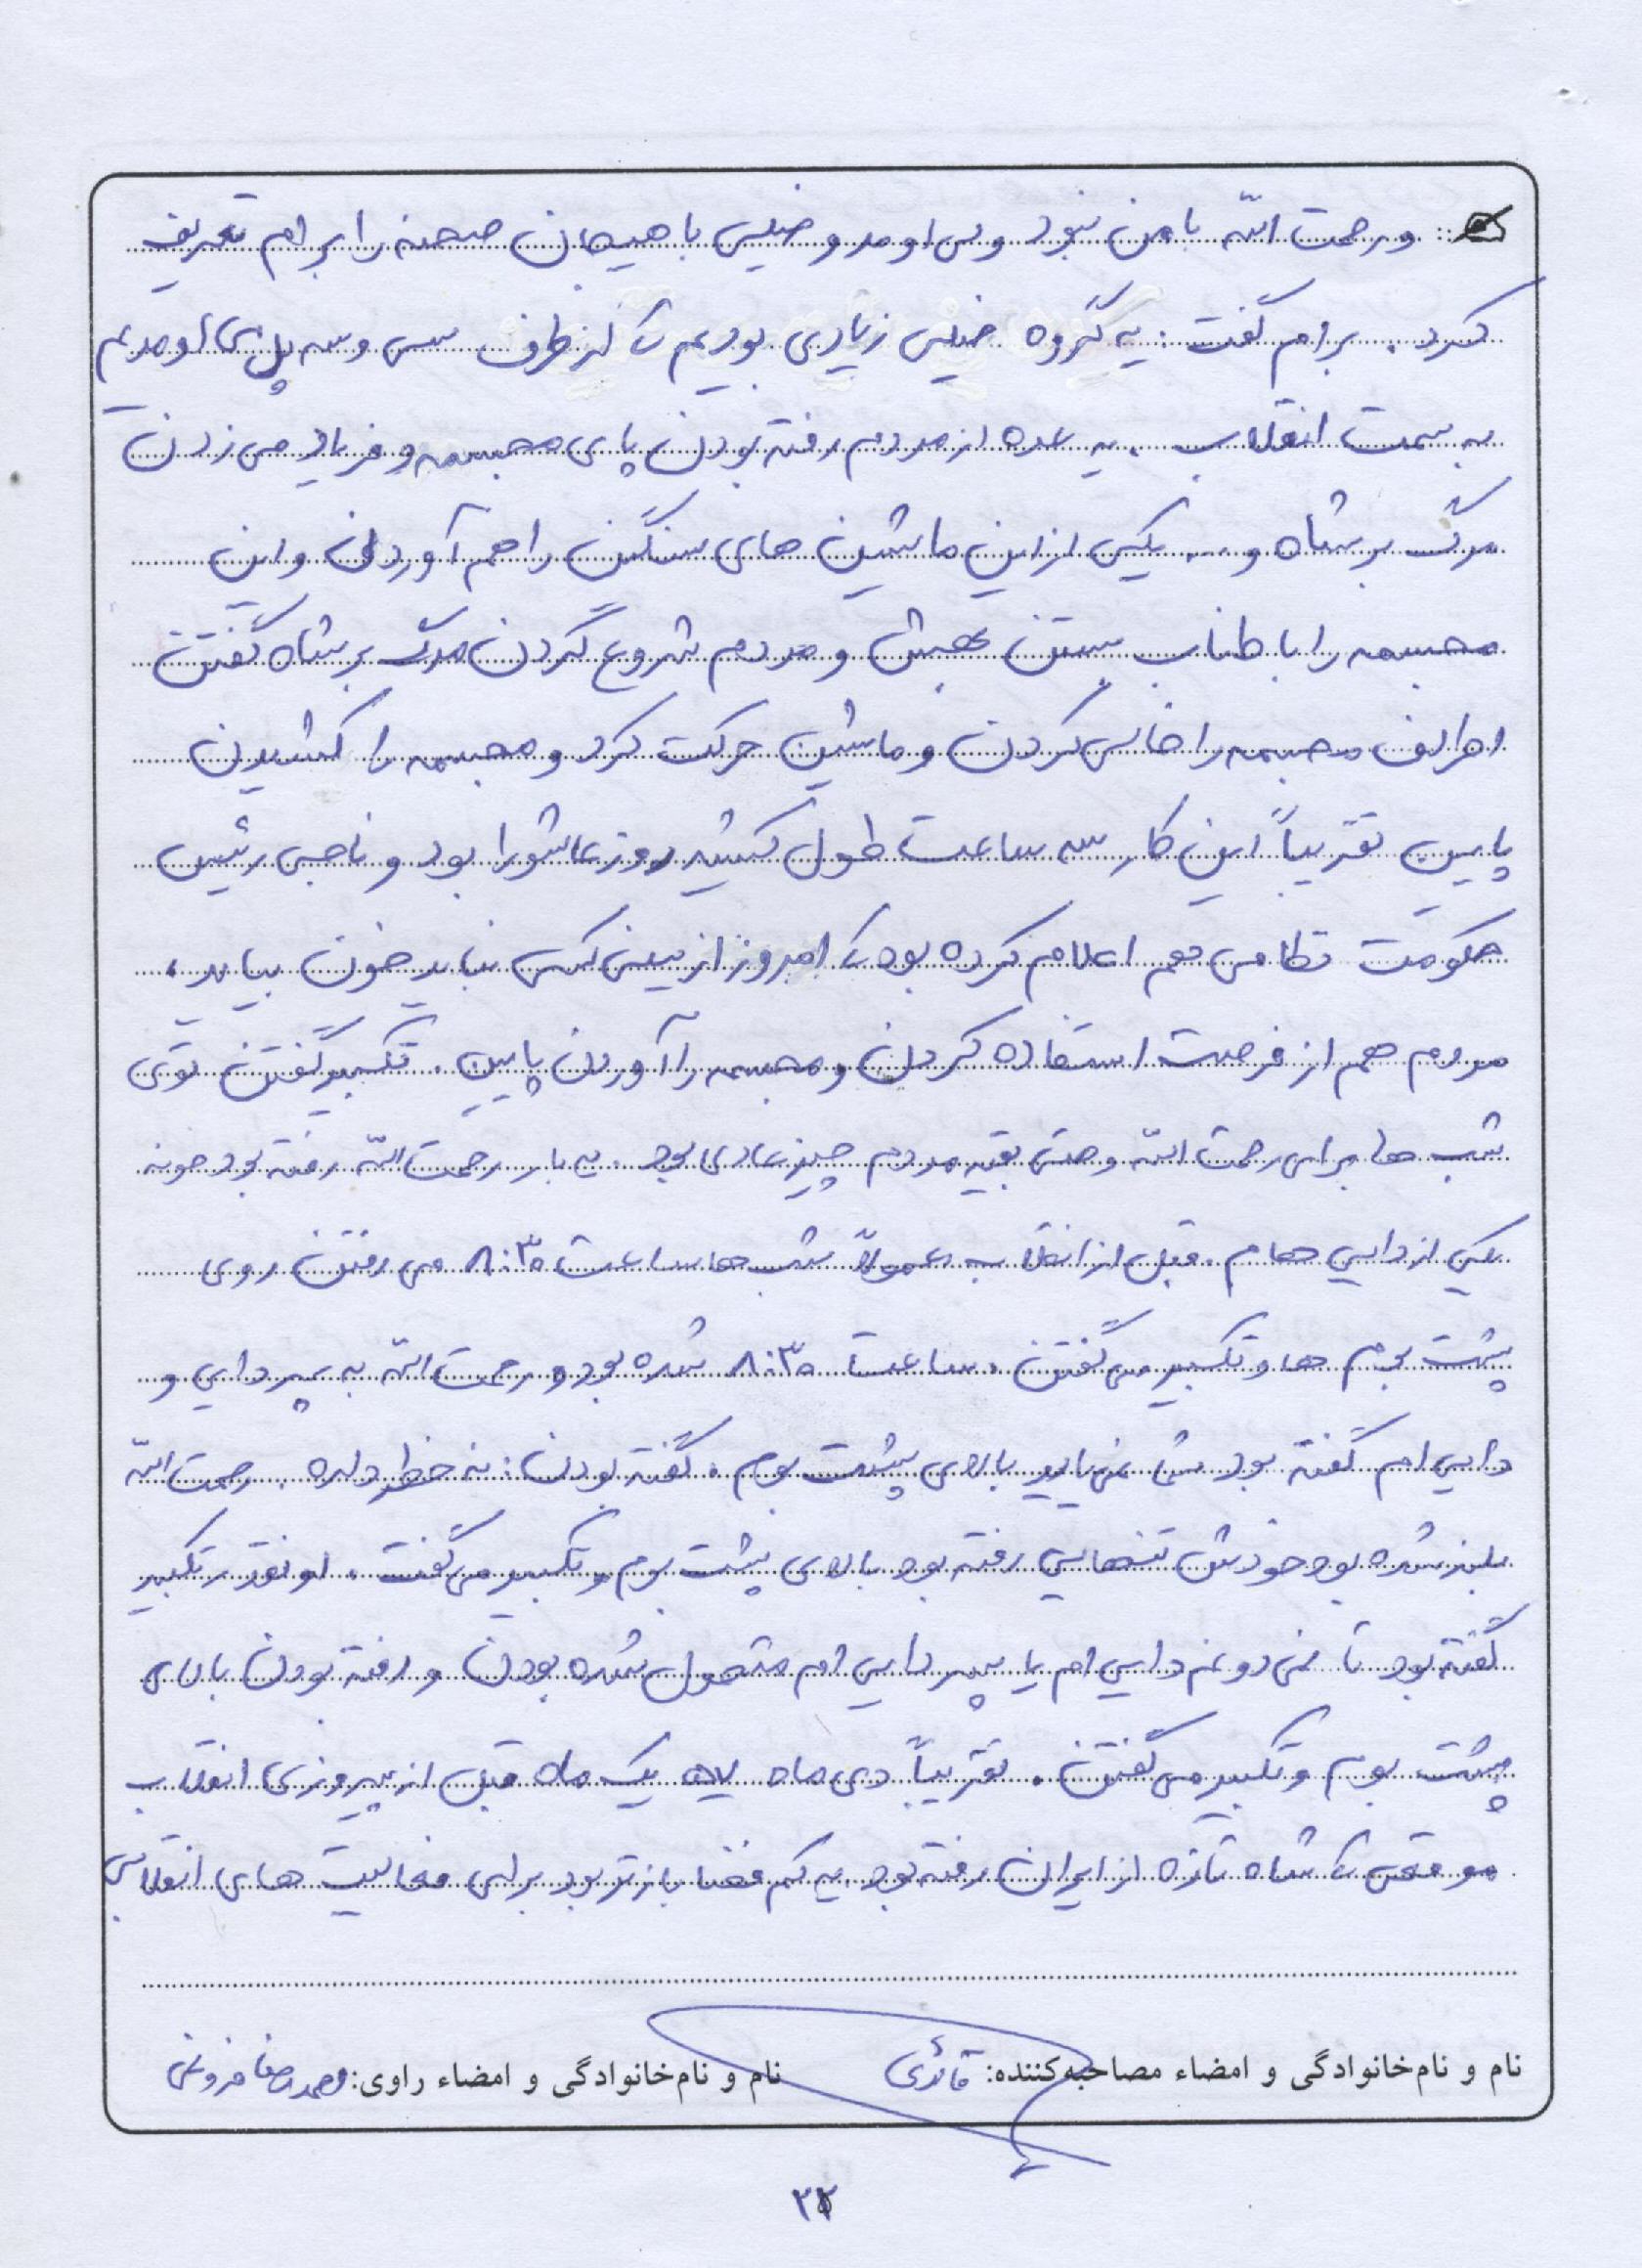 و رحمت الله با من نبود ولی اومد و خیلی با هیجان صحنه را برام تعریف
کرد. برام گفت: یه گروه خیلی زیادی بودیم که از طرف سی و سه پل می اومدیم
به سمت انقلاب. یه عده از مردم رفته بودن پای مجسمه و فریاد می زدن
مرگ بر شاه و ... یکی از این ماشین های سنگین را هم آوردن و این
مجسمه را با طناب بستن بهش و مردم شروع کردن مرگ بر شاه گفتن
اطراف مجسمه را خالی کردن و ماشین حرکت کرد و مجسمه را کشیدن
پایین تقریباً این کار سه ساعت طول کشید روز عاشورا بود و ناجی رئیس
حکومت نظامی هم اعلام کرده بود که امروز از بینی کسی نباید خون بیاید،
مردم هم از فرصت استفاده کردن و مجسمه را آوردن پایین. تکبیر گفتن توی
شب ها برای رحمت الله و حتی بقیه مردم چیز عادی بود. یه بار رحمت الله رفته بود خونه
یکی از دایی هام. قبل از انقلاب معمولاً شب ها ساعت ۸:۳۰ می رفتن روی
پشت بوم ها و تکبیر می گفتن. ساعت ۸:۳۰ شده بود و رحمت الله به پسر دایی و
دایی ام گفته بود شما نمی یایید بالای پشت بوم. گفته بودن: نه خطر داره. رحمت الله
بلند شده بود خودش تنهایی رفته بود بالای پشت بوم و تکبیر می گفت. اونقدر تکبیر
گفته بود تا نمی دونم دایی ام یا پسر دایی ام متحول شده بودن و رفته بودن بالای
پشت بوم و تکبیر می گفتن. تقریباً دی ماه ۵۷ یک ماه قبل از پیروزی انقلاب
موقعی که شاه تازه از ایران رفته بود. یه کم فضا بازتر بود برای فعالیت های انقلابی
نام و نام‌خانوادگی و امضاء مصاحبه‌کننده: قائدی نام و نام‌خانوادگی و امضاء راوی: محمدرضا فروغی
۲۲